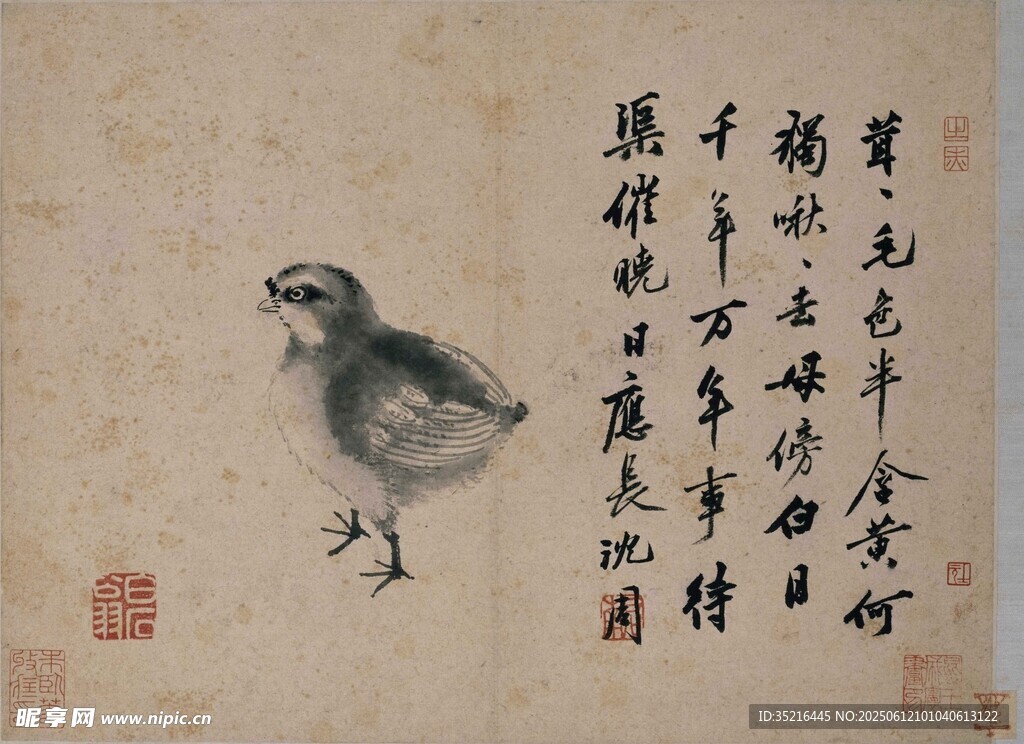 茸、毛色半含黄何
獨啾、去母傍白日
千年万年事待
渠催曉日應長沈周
白石翁
昵享网 www.nipic.cn
ID:35216445 NO:20250612101040613122